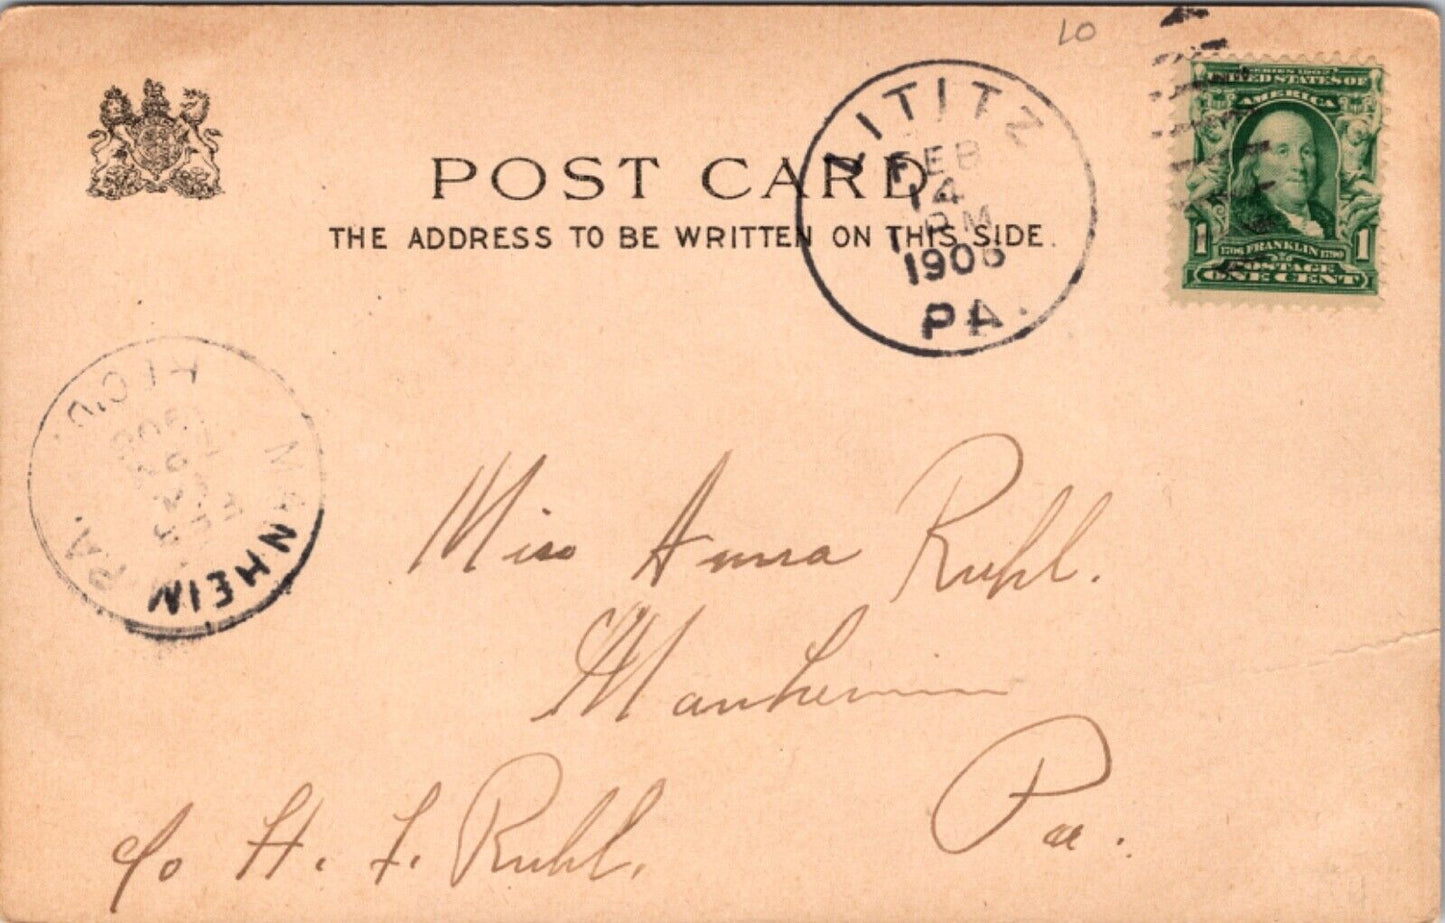 LO
SERIES 1902
UNITED STATES OF
AMERICA
1 1706 FRANKLIN 1790 1
POSTAGE
ONE CENT
POST CARD
THE ADDRESS TO BE WRITTEN ON THIS SIDE.
LITITZ
FEB
14
1 PM
1906
PA.
MANHEIM PA.
REC'D.
FEB
Miss Anna Ruhl.
Manheim
Pa.
c/o H. F. Ruhl.